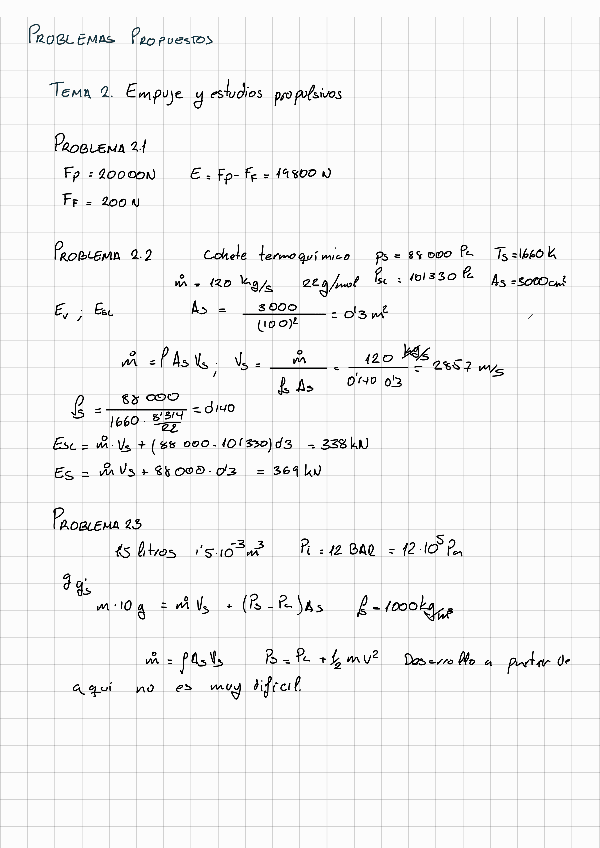 PROBLEMAS PROPUESTOS
TEMA 2. Empuje y estudios propulsivos
PROBLEMA 2.1
Fp = 20000N E = Fp - FF = 19800 N
FF = 200 N
PROBLEMA 2.2 Cohete termoquímico ps = 88 000 Pa Ts = 1660 K
ṁ = 120 kg/s 22g/mol Psc = 101330 Pa As = 3000 cm²
Ev ; Esc As = 3000 / (100)² = 0'3 m²
ṁ = ρ As Vs ; Vs = ṁ / ρs As = 120 / 0'140 0'3 = 2857 m/s
ρs = 88 000 / 1660 · 8'314/22 = 0'140
Esc = ṁ · Vs + (88 000 - 101330) 0'3 = 338 kN
Es = ṁ Vs + 88 000 · 0'3 = 369 kN
PROBLEMA 2.3
1'5 litros 1'5·10⁻³ m³ Pi = 12 BAR = 12·10⁵ Pa
m · 10 g = ṁ Vs + (Ps - Pa) As
ṁ = ρ As Vs Desarrollo a partir de
aquí no es muy difícil.